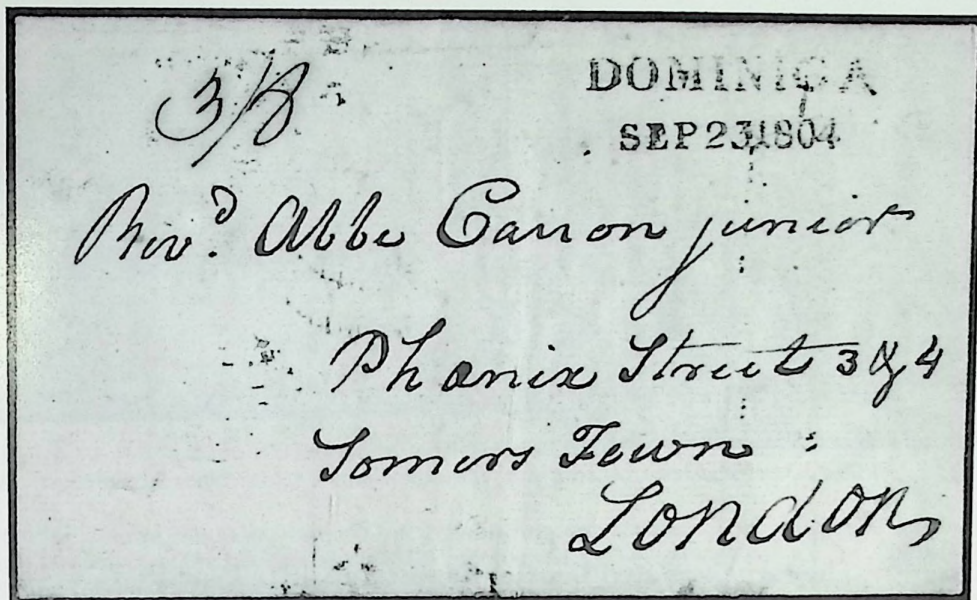 3/8
DOMINICA
SEP 23 1804
Revᵈ. Abbe Carron junior
Phœnix Street 3 & 4
Somers Town
London